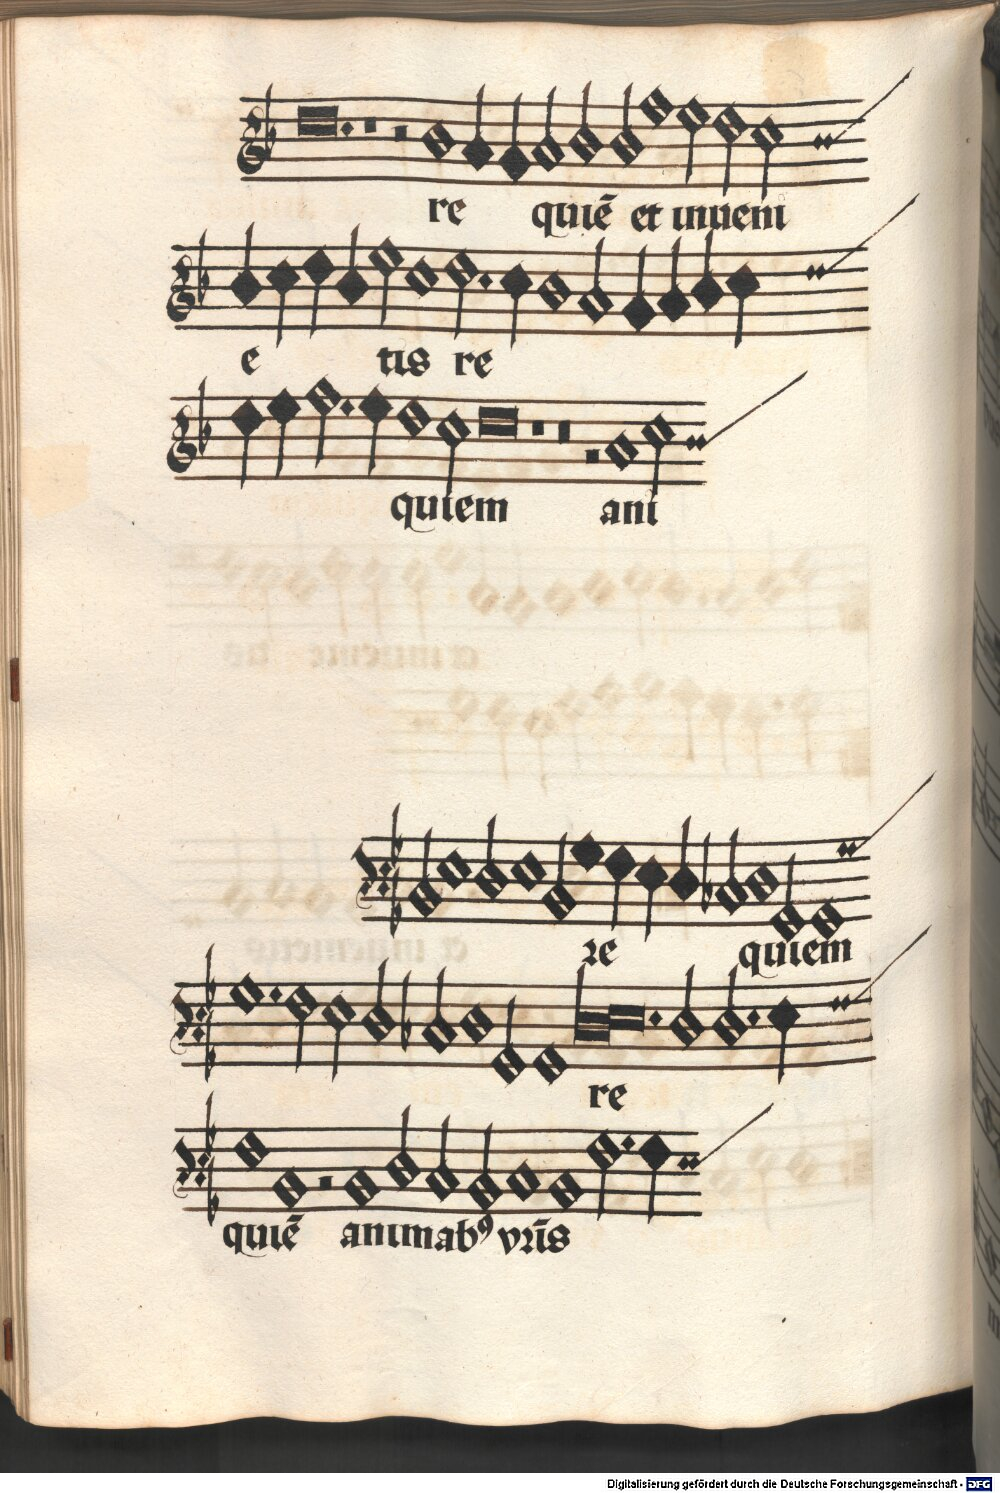 re quiē et inueni
e tis re
quiem ani
re quiem
re
quiē animabꝰ vr̄is
Digitalisierung gefördert durch die Deutsche Forschungsgemeinschaft - DFG